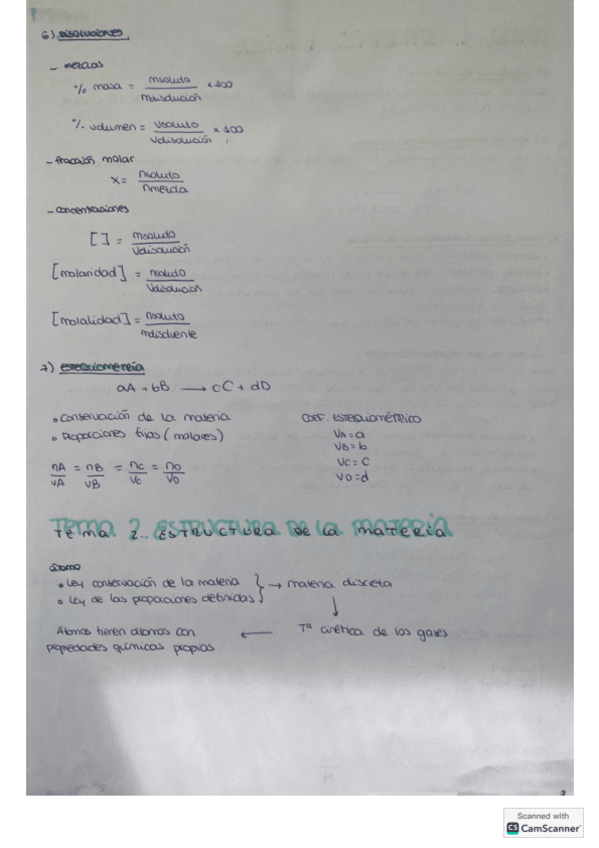 6) Disoluciones
- mezclas
% masa = msoluto / mdisolución × 100
% volumen = Vsoluto / Vdisolución × 100
- fracción molar
X = nsoluto / nmezcla
- concentraciones
[ ] = msoluto / Vdisolución
[molaridad] = nsoluto / Vdisolución
[molalidad] = nsoluto / mdisolvente
7) estequiometría
aA + bB → cC + dD
• Conservación de la materia
• Proporciones fijas (molares)
nA / νA = nB / νB = nC / νC = nD / νD
COEF. ESTEQUIOMÉTRICO
νA = a
νB = b
νC = c
νD = d
Tema 2. ESTRUCTURA DE LA MATERIA
Tema 2.. ESTRUCTURA DE LA MATERIA
átomo
• Ley conservación de la materia
• Ley de las proporciones definidas } → materia discreta
↓
Átomos tienen átomos con ← Tª cinética de los gases
propiedades químicas propias
2
Scanned with
CS CamScanner